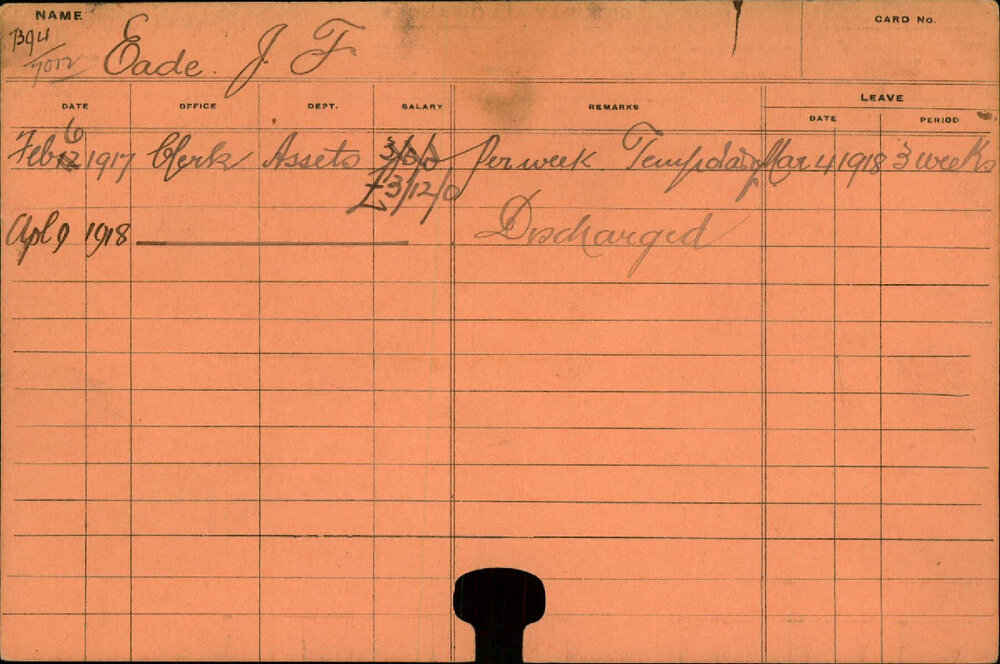 NAME
CARD No.
B94/7012
Eade. J. F
DATE OFFICE DEPT. SALARY REMARKS LEAVE
DATE PERIOD
6
Feb 12 1917 Clerk Assets 3/3/0 Per week. Tempdary Mar 4 1918 3 weeks
£3/12/0
Apl 9 1918 Discharged